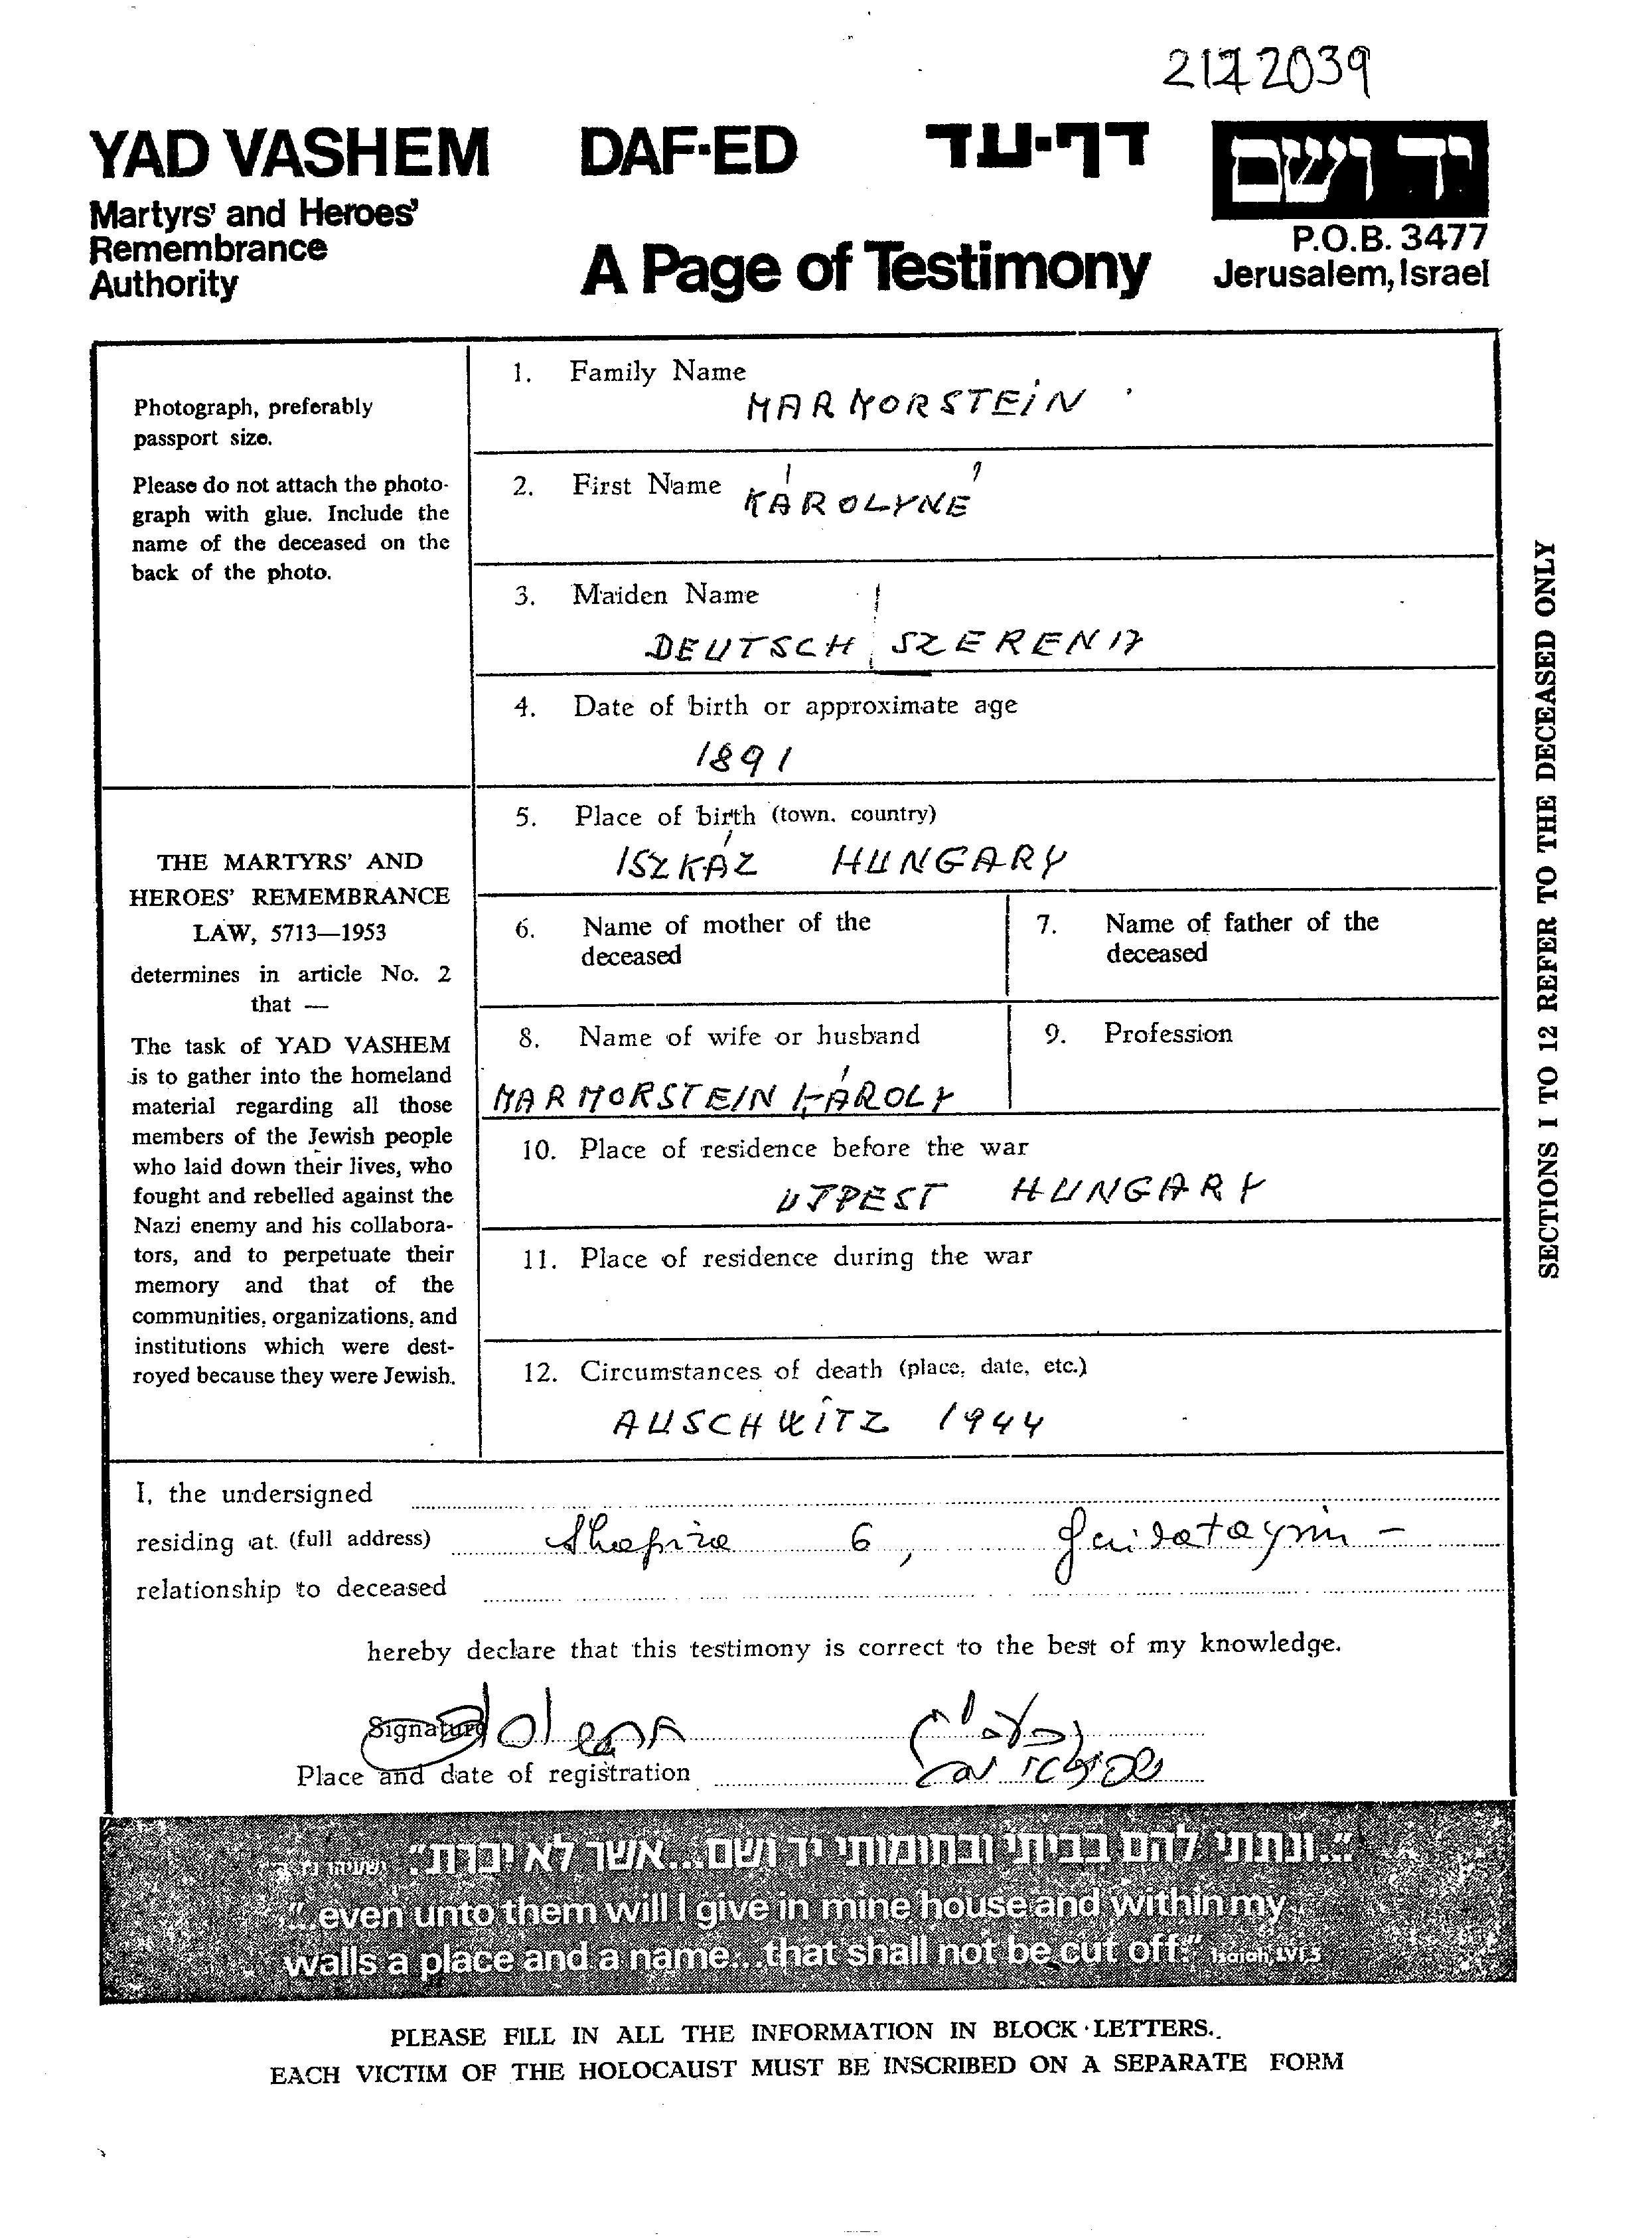 2172039
YAD VASHEM DAF-ED דף-עד יד ושם
Martyrs' and Heroes'
Remembrance
Authority
A Page of Testimony
P.O.B. 3477
Jerusalem, Israel
Photograph, preferably
passport size.
Please do not attach the photo-
graph with glue. Include the
name of the deceased on the
back of the photo.
THE MARTYRS' AND
HEROES' REMEMBRANCE
LAW, 5713—1953
determines in article No. 2
that —
The task of YAD VASHEM
is to gather into the homeland
material regarding all those
members of the Jewish people
who laid down their lives, who
fought and rebelled against the
Nazi enemy and his collabora-
tors, and to perpetuate their
memory and that of the
communities, organizations, and
institutions which were dest-
royed because they were Jewish.
1. Family Name
MARMORSTEIN
2. First Name KÁROLYNÉ
3. Maiden Name
DEUTSCH SZERENA
4. Date of birth or approximate age
1891
5. Place of birth (town, country)
ISZKÁZ HUNGARY
6. Name of mother of the
deceased
7. Name of father of the
deceased
8. Name of wife or husband
MARMORSTEIN KÁROLY
9. Profession
10. Place of residence before the war
UJPEST HUNGARY
11. Place of residence during the war
12. Circumstances of death (place, date, etc.)
AUSCHWITZ 1944
SECTIONS 1 TO 12 REFER TO THE DECEASED ONLY
I, the undersigned
residing at (full address) Shapira 6,
relationship to deceased
hereby declare that this testimony is correct to the best of my knowledge.
Signature
Place and date of registration
"...ונתתי להם בביתי ובחומותי יד ושם...אשר לא יכרת". ישעיהו נ"ו ה'
"...even unto them will I give in mine house and within my
walls a place and a name...that shall not be cut off." Isaiah, LVI,5
PLEASE FILL IN ALL THE INFORMATION IN BLOCK LETTERS.
EACH VICTIM OF THE HOLOCAUST MUST BE INSCRIBED ON A SEPARATE FORM